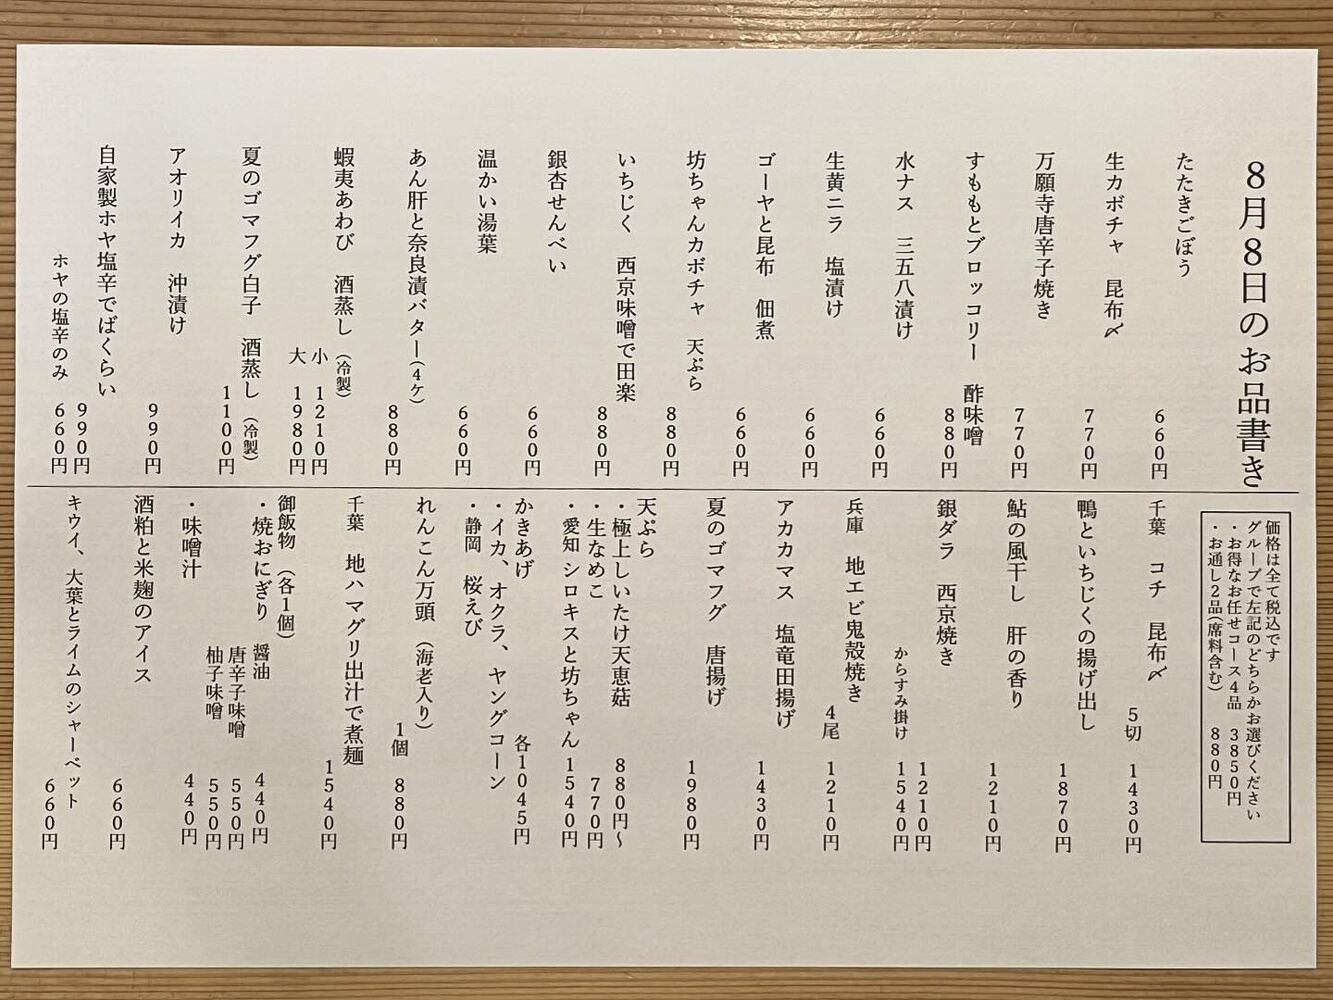 8月8日のお品書き
たたきごぼう 660円
生カボチャ 昆布〆 770円
万願寺唐辛子焼き 770円
すももとブロッコリー 酢味噌 880円
水ナス 三五八漬け 660円
生黄ニラ 塩漬け 660円
ゴーヤと昆布 佃煮 660円
坊ちゃんカボチャ 天ぷら 880円
いちじく 西京味噌で田楽 880円
銀杏せんべい 660円
温かい湯葉 660円
あん肝と奈良漬バター(4ケ) 880円
蝦夷あわび 酒蒸し(冷製)
小 1210円
大 1980円
夏のゴマフグ白子 酒蒸し(冷製) 1100円
アオリイカ 沖漬け 990円
自家製ホヤ塩辛でばくらい 990円
ホヤの塩辛のみ 660円
価格は全て税込です
グループで左記のどちらかお選びください
・お得なお任せコース4品 3850円
・お通し2品(席料含む) 880円
千葉 コチ 昆布〆 5切 1430円
鴨といちじくの揚げ出し 1870円
鮎の風干し 肝の香り 1210円
銀ダラ 西京焼き 1210円
からすみ掛け 1540円
兵庫 地エビ鬼殻焼き 4尾 1210円
アカカマス 塩竜田揚げ 1430円
夏のゴマフグ 唐揚げ 1980円
天ぷら
・極上しいたけ天恵菇 880円〜
・生なめこ 770円
・愛知 シロキスと坊ちゃん 1540円
かきあげ 各1045円
・イカ、オクラ、ヤングコーン
・静岡 桜えび
れんこん万頭(海老入り) 1個 880円
千葉 地ハマグリ出汁で煮麺 1540円
御飯物(各1個)
・焼おにぎり 醤油 440円
唐辛子味噌 550円
柚子味噌 550円
・味噌汁 440円
酒粕と米麹のアイス 660円
キウイ、大葉とライムのシャーベット 660円